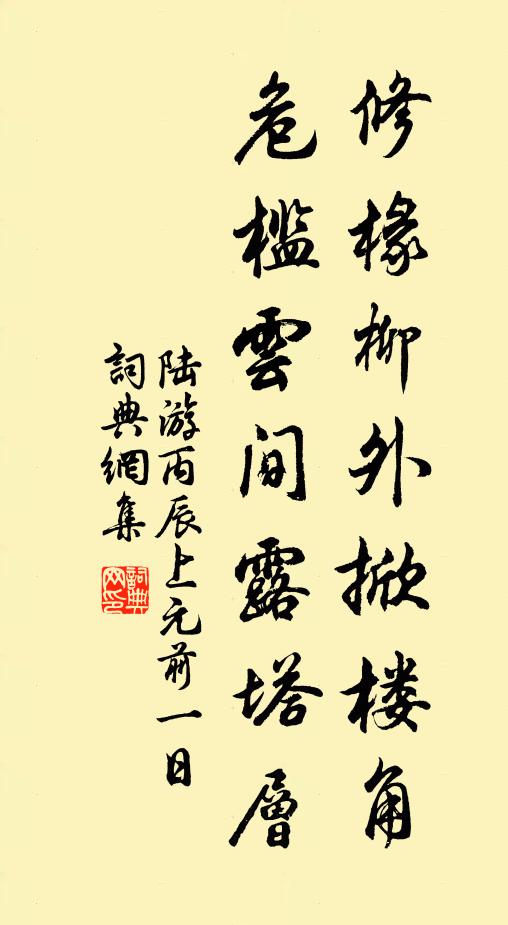 修椽柳外掀楼角
危檻雲间露塔層
陆游丙辰上元前一日
詞典網集
詞典网印